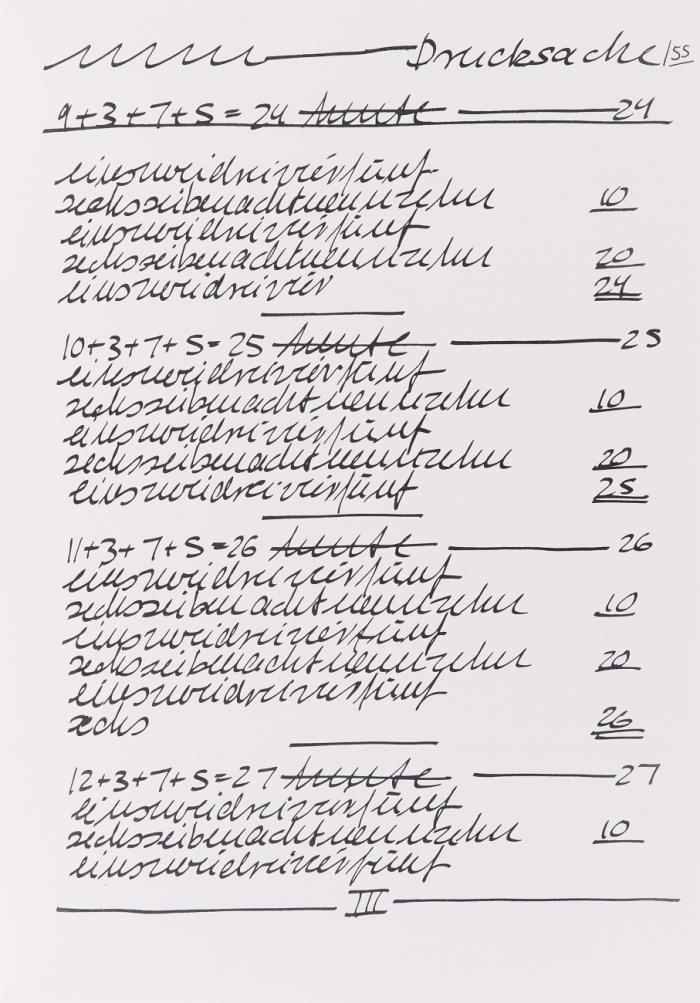 Drucksache/55
9+3+7+5=24 heute 24
einszweidreivierfünf
sechsseibenachtneunzehn 10
einszweidreivierfünf
sechsseibenachtneunzehn 20
einszweidreivier 24
10+3+7+5=25 heute 25
einszweidreivierfünf
sechsseibenachtneunzehn 10
einszweidreivierfünf
sechsseibenachtneunzehn 20
einszweidreivierfünf 25
11+3+7+5=26 heute 26
einszweidreivierfünf
sechsseibenachtneunzehn 10
einszweidreivierfünf
sechsseibenachtneunzehn 20
einszweidreivierfünf
sechs 26
12+3+7+5=27 heute 27
einszweidreivierfünf
sechsseibenachtneunzehn 10
einszweidreivierfünf
III